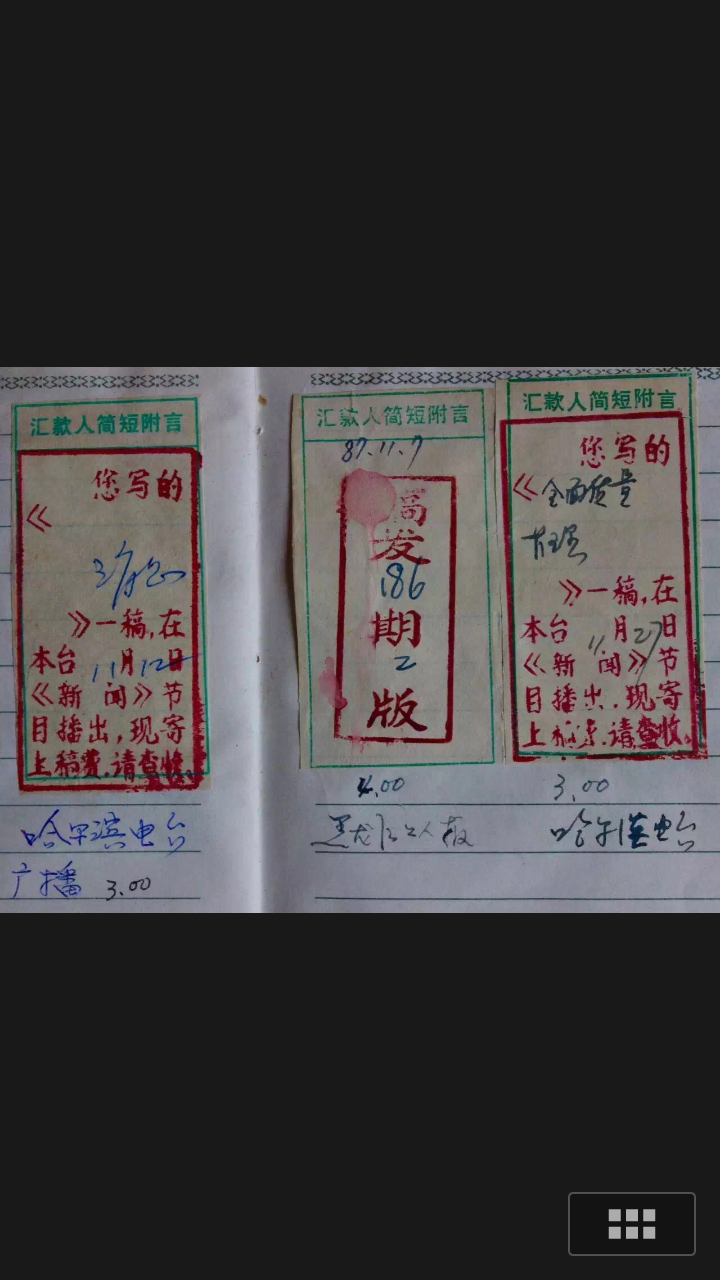 汇款人简短附言
您写的
《
》一稿,在
本台11月12日
《新闻》节
目播出,现寄
上稿费.请查收.
哈尔滨电台
广播 3.00
汇款人简短附言
87.11.7
稿发
186
期
2
版
4.00
黑龙江工人报
汇款人简短附言
您写的
《全面质量
管理
》一稿,在
本台11月27日
《新闻》节
目播出.现寄
上稿费.请查收.
3.00
哈尔滨电台